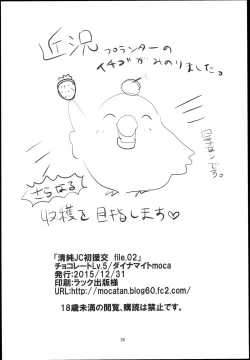 近況
プランターの
イチゴがみのりました。
さらなる
収穫を目指します♡
「清純JC初援交 file.02」
チョコレートLv.5/ダイナマイトmoca
発行:2015/12/31
印刷:ラック出版様
URL:http://mocatan.blog60.fc2.com/
18歳未満の閲覧、購読は禁止です。